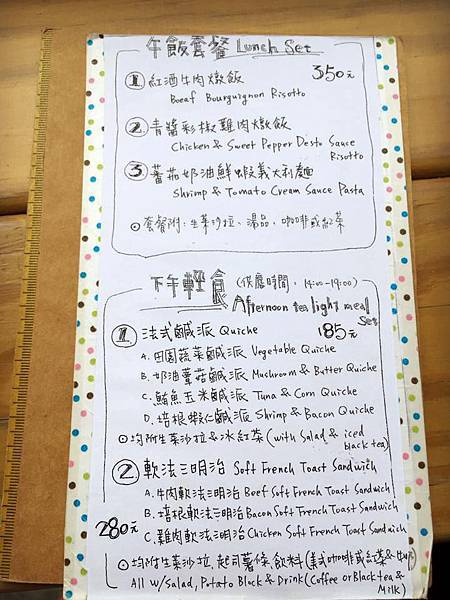 午飯套餐 Lunch Set
① 紅酒牛肉燉飯 350元
Boeaf Bourguignon Risotto
② 青醬彩椒雞肉燉飯
Chicken & Sweet Pepper Desto Sauce
Risotto
③ 蕃茄奶油鮮蝦義大利麵
Shrimp & Tomato Cream Sauce Pasta
⊙ 套餐附：生菜沙拉、湯品、咖啡或紅茶
下午輕食 (供應時間, 14:00-19:00)
Afternoon tea light meal
Set
① 法式鹹派 Quiche 185元
A. 田園蔬菜鹹派 Vegetable Quiche
B. 奶油蘑菇鹹派 Mushroom & Butter Quiche
C. 鮪魚玉米鹹派 Tuna & Corn Quiche
D. 培根蝦仁鹹派 Shrimp & Bacon Quiche
⊙ 均附生菜沙拉 & 冰紅茶 (with Salad & iced
black tea)
② 軟法三明治 Soft French Toast Sandwich
A. 牛肉軟法三明治 Beef Soft French Toast Sandwich
280元 B. 培根軟法三明治 Bacon Soft French Toast Sandwich
C. 雞肉軟法三明治 Chicken Soft French Toast Sandwich
⊙ 均附生菜沙拉 起司薯條 飲料 (美式咖啡或紅茶 & 牛奶)
All w/Salad, Potato Block & Drink (Coffee or Black tea &
Milk)